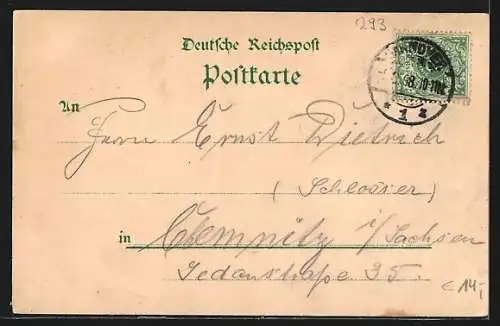 293
Deutsche Reichspost
Postkarte
HANNOVER
98. 10-11N.
* 1 z
An
Herrn Ernst Dietrich
(Schlosser)
in Chemnitz i/Sachsen
Sedanstraße 35.
€ 14,-